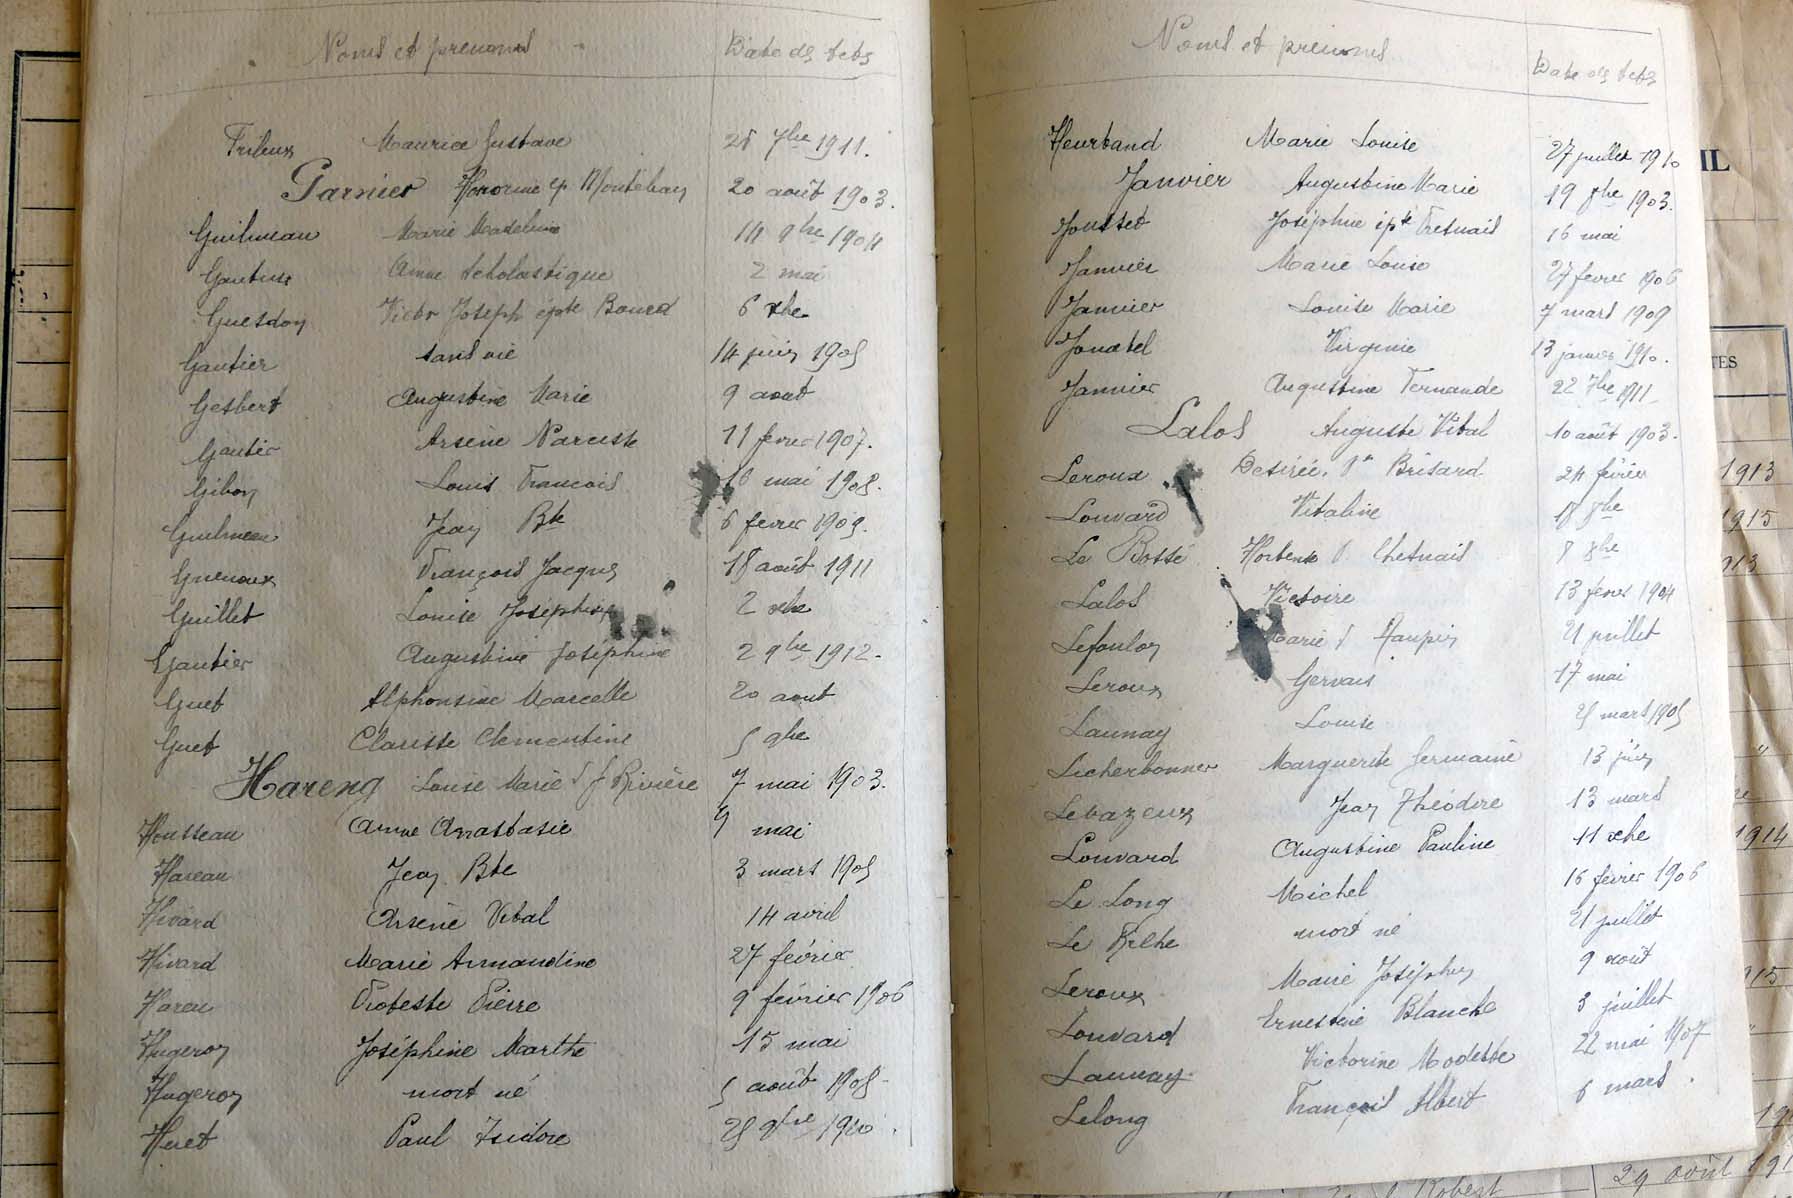 Noms et prenoms Date des actes
Maurice Gustave 7bre 1911.
Garnier Honorine ep Montebay 20 août 1903.
Guilmeau Marie Madeleine 14 9bre 1904
Gautier Anne Scholastique 2 mai
Guesdon Victor Joseph épte 6 xbre
Gautier sans vie 14 juin
Gesbert Augustine Marie 9 aout
Gautier Arsène Narcisse 11 fevrier 1907.
Gibon Louis Francois 16 mai
Guilmeau Jean Bte 6 fevrier 1909.
Guenoux François Jacques 18 août 1911
Guillet Louise Joséphine 2 xbre
Gautier Augustine Joséphine 2 9bre 1912.
Guet Alphonsine Marcelle 20 aout
Guet Clarisse Clementine 5 9bre
Hareng Louise Marie Rivière 7 mai 1903.
Housseau Anne Anastasie 9 mai
Hareau Jean Bte 3 mars
Hivard Arsène Vital 14 avril
Hivard Marie Armandine 27 février
Hareau Pierre 9 février 1906
Hugeron Joséphine Marthe 15 mai
Hugeron mort né 5 août
Heret Paul Isidore 9bre 1910.
Noms et prenoms Date des actes
Heurtand Marie Louise 27 juillet 1910
Janvier Augustine Marie 19 8bre 1903.
Jousset Joséphine épte 16 mai
Janvier Marie Louise 27 fevrier 1906
Janvier Louise Marie 7 mars 1909
Jouatel Virginie 13 janvier 1910.
Janvier Augustine Fernande 22 7bre 1911
Lalos Auguste Vital 10 août 1903.
Leroux Desirée Vve Brisard 24 février
Louvard Vitaline 18 8bre
Le Bossé Hortense Chesnais 8 8bre
Lalos Victoire 13 février 1904
Lefoulon Marie Maupin 21 juillet
Leroux Gervais 17 mai
Launay Louise mars
Licherbonnier Marguerite Germaine 13 juin
Levazeux Jean Théodore 13 mars
Louvard Augustine Pauline 11 xbre
Le Long Michel 16 février 1906
Le mort né 21 juillet
Leroux Marie Joséphine 9 août
Louvard Ernestine Blanche 3 juillet
Launay Victorine Modeste 22 mai 1907
Lelong François Albert 6 mars.
IL
TES
1913
1915
1913
1914
Robert
29 août